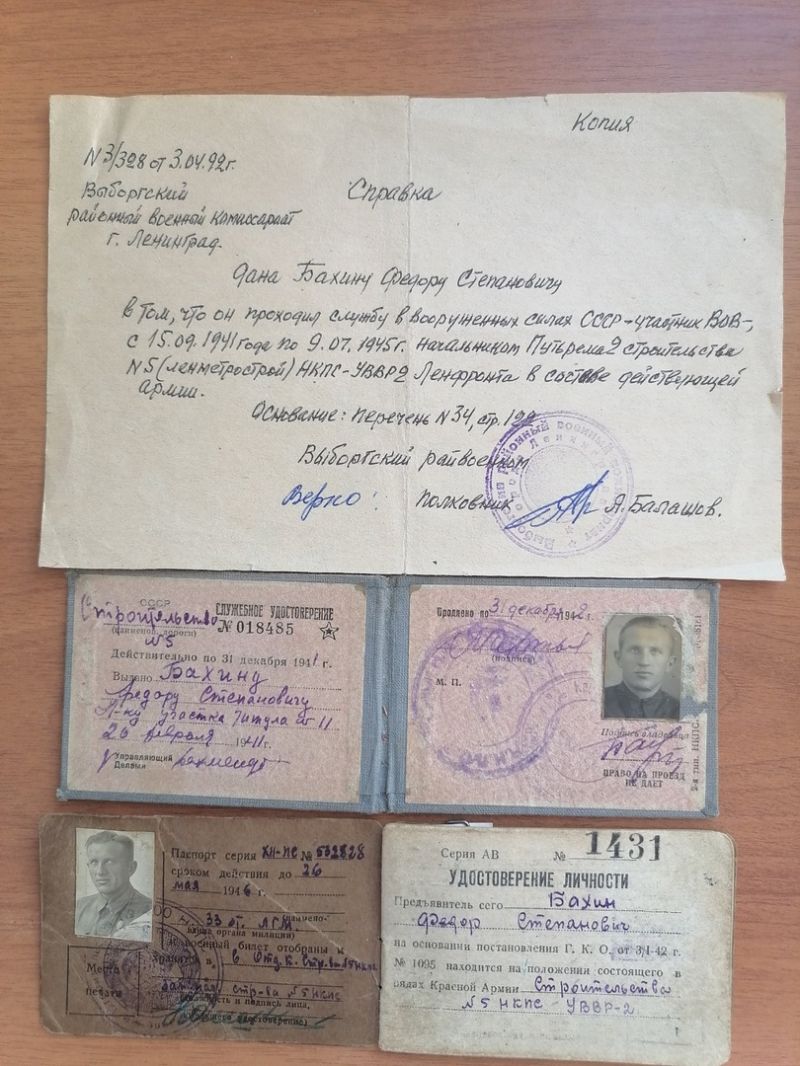 Копия
N 3/328 от 3.04.92г.
Выборгский
районный военный комиссариат
г. Ленинград.
Справка
Дана Бахину Федору Степановичу
в том, что он проходил службу в вооруженных силах СССР - участник ВОВ-,
с 15.09.1941 года по 9.07.1945г. начальником Путьрема2 строительства
N5 (ленметрострой) НКПС-УВВР2 Ленфронта в составе действующей
армии.
Основание: перечень N34, стр. 122
Выборгский райвоенком
Верно: полковник А. Балашов.
СССР
Строительство
№5
СЛУЖЕБНОЕ УДОСТОВЕРЕНИЕ
№ 018485
Действительно по 31 декабря 1941 г.
Выдано Бахину
Федору Степановичу
Н-ку участка титула № 11
26 февраля 1941 г.
Управляющий
Делами
Продлено по 31 декабря 1942 г.
(подпись)
М. П.
Подпись владельца
ПРАВО НА ПРОЕЗД
НЕ ДАЕТ
Паспорт серия XII-ПС № 532828
сроком действия до 26
мая 1946 г.
33 от. ЛГМ
и военный билет отобраны и
хранятся в
Место
печати
Серия АВ № 1431
УДОСТОВЕРЕНИЕ ЛИЧНОСТИ
Предъявитель сего Бахин
Федор Степанович
на основании постановления Г. К. О. от 3/I-42 г.
№ 1095 находится на положении состоящего в
рядах Красной Армии Строительства
№5 НКПС - УВВР-2